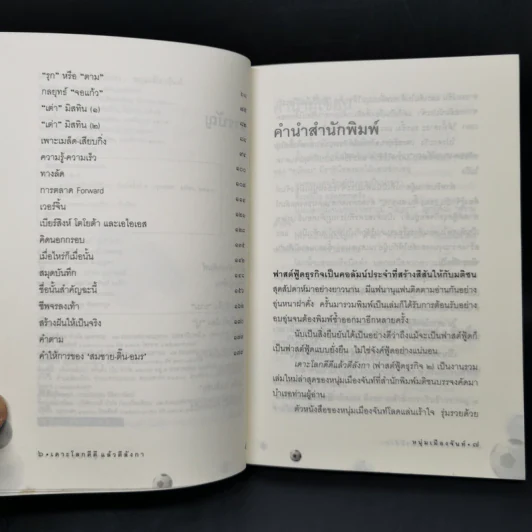 "รุก" หรือ "ตาม"
กลยุทธ์ "จอแก้ว"
"เต่า" มิสทิน (๑)
"เต่า" มิสทิน (๒)
เพาะเมล็ด-เสียบกิ่ง
ความรู้-ความเร็ว
ทางลัด
การตลาด Forward
เวอร์จิ้น
เบียร์สิงห์ โตโยต้า และเอไอเอส
คิดนอกกรอบ
เมื่อไหร่ก็เมื่อนั้น
สมุดบันทึก
ชื่อนั้นสำคัญฉะนี้
ชีพจรลงเท้า
สร้างฝันให้เป็นจริง
คำถาม
คำให้การของ "สมชาย-ติ๊น-อมร"
๖ • เคาะโลกดีดี แล้วตีลังกา
คำนำสำนักพิมพ์
ฟาสต์ฟู้ดธุรกิจเป็นคอลัมน์ประจำที่สร้างสีสันให้กับมติชน
สุดสัปดาห์มาอย่างยาวนาน มีแฟนานุแฟนติดตามอ่านกันอย่าง
อุ่นหนาฝาคั่ง ครั้นมารวมพิมพ์เป็นเล่มก็ได้รับการต้อนรับอย่าง
อบอุ่นจนต้องพิมพ์ซ้ำออกมาอีกหลายครั้ง
นับเป็นสิ่งยืนยันได้เป็นอย่างดีว่าถึงแม้จะเป็นฟาสต์ฟู้ดก็
เป็นฟาสต์ฟู้ดแบบยั่งยืน ไม่ใช่จังค์ฟู้ดอย่างแน่นอน
เคาะโลกดีดีแล้วตีลังกา (ฟาสต์ฟู้ดธุรกิจ ๒) เป็นงานรวม
เล่มใหม่ล่าสุดของหนุ่มเมืองจันท์ที่สำนักพิมพ์มติชนบรรจงคัดมา
บำเรอท่านผู้อ่าน
ตัวหนังสือของหนุ่มเมืองจันท์โลดแล่นเร้าใจ รุ่มรวยด้วย
หนุ่มเมืองจันท์ • ๗